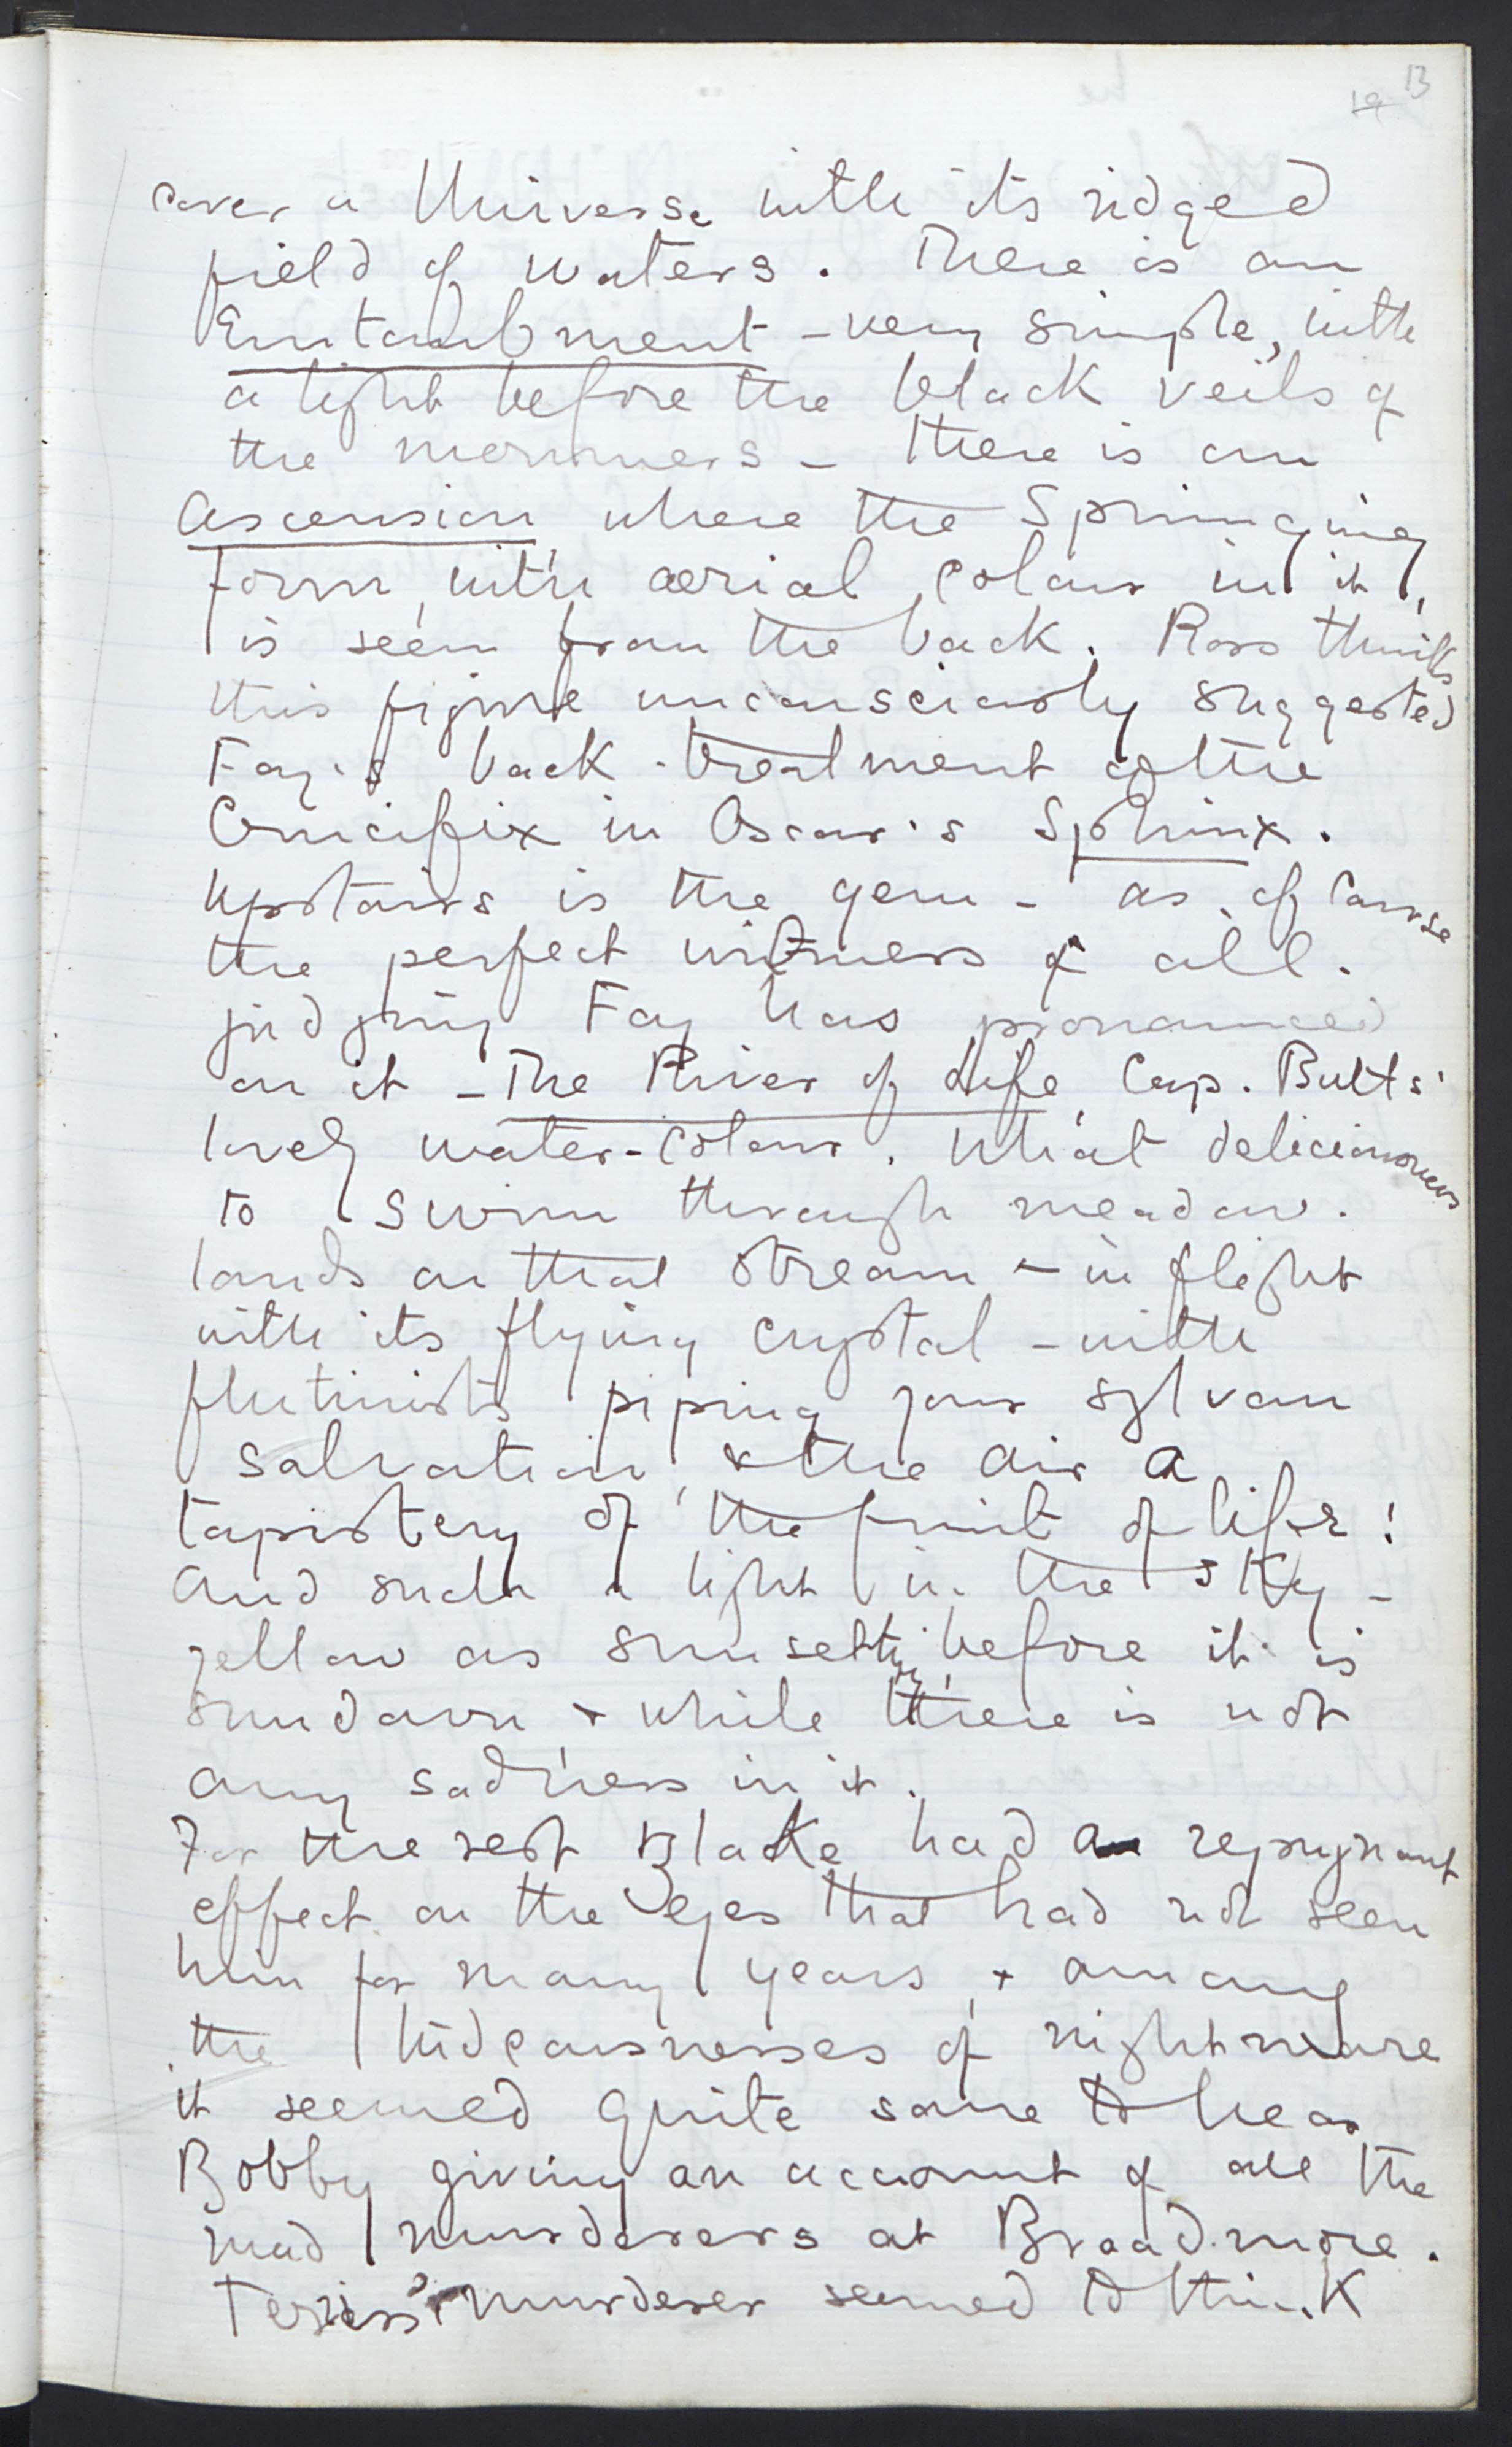 19 13
cover a Universe with its ridged
field of waters. There is an
Entombment – very simple, with
a light before the black veils of
the mourners – there is an
Ascension, where the springing
form, with aerial colour in it,
is seen from the back. Ross thinks
this figure unconsciously suggested
Fay's back-treatment of the
Crucifix in Oscar's Sphinx.
Upstairs is the gem – as, of course
the perfect witness & all-
judging Fay has pronounced
on it – The River of Life, Cap. Butts'
lovely water-colour. What deliciousness
to swim through meadow-
lands on that stream – in flight
with its flying crystal – with
flutinists piping your sylvan
salvation, & the air a
tapistery of the fruit of life!
And such a light in the sky –
yellow as sunsetting, before it is
sundown & while there is not
any sadness in it.
For the rest Blake had a repugnant
effect on the eyes that had not seen
him for many years, & among
the hideousnesses of nightmare
it seemed quite sane to hear
Bobby giving an account of all the
mad murderers at Broadmore.
Teriss' murderer seemed to think